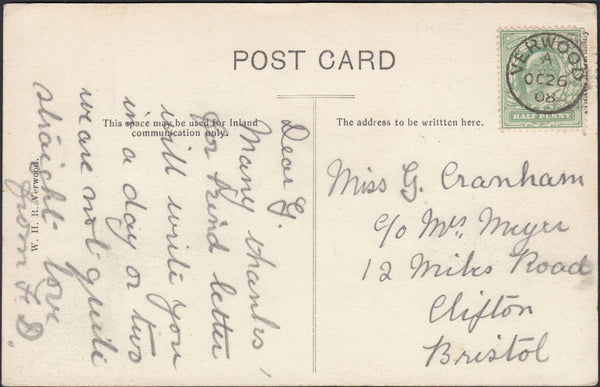 POST CARD
This space may be used for Inland
communication only.
The address to be writtten here.
VERWOOD
A
OC 26
08
HALF PENNY
Dear G.
Many thanks
for kind letter
will write you
in a day or two
we are not quite
straight love
from F. D.
Miss G. Cranham
c/o Mrs Meyer
12 Miles Road
Clifton
Bristol
W. H. R. Verwood.